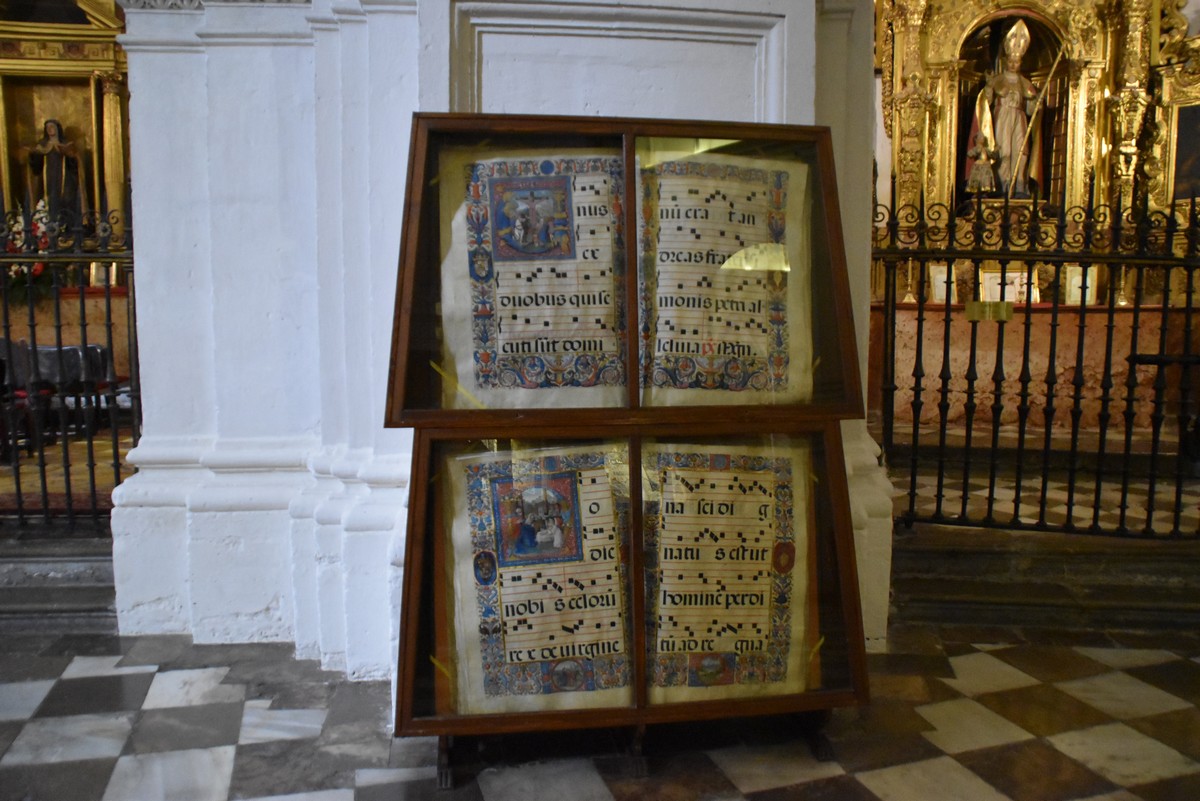 nus
ex
duobus quise
cuti sūt domi
nū era t an
dreas fra
monis petri al
leluia
o
die
nobi s celorū
re x de uirgine
na sci di g
natu s est ut
hominē perdi
tū ad re gna